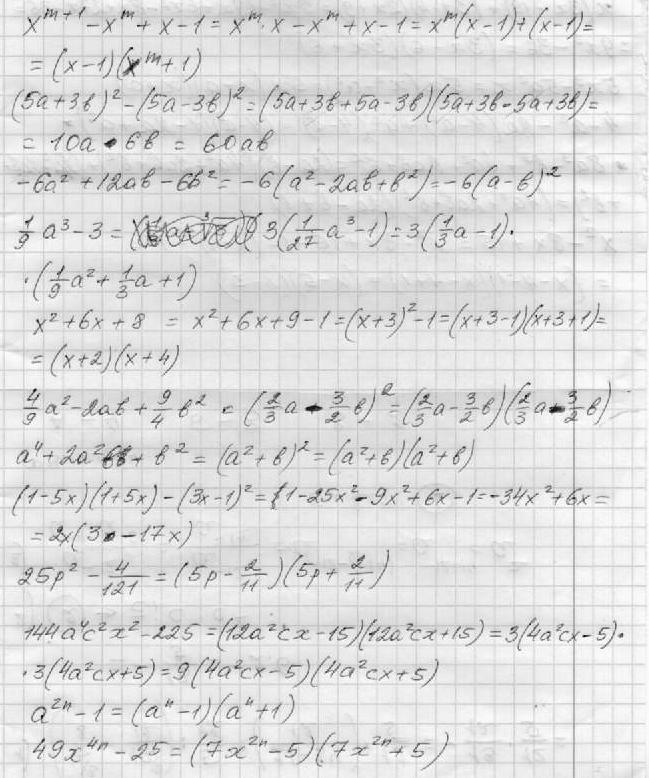 x^{m+1} - x^m + x - 1 = x^m · x - x^m + x - 1 = x^m(x-1) + (x-1) =
= (x-1)(x^m + 1)
(5a+3в)² - (5a-3в)² = (5a+3в+5a-3в)(5a+3в-5a+3в) =
= 10a • 6в = 60aв
-6a² + 12aв - 6в² = -6(a² - 2aв + в²) = -6(a-в)²
1/9 a³ - 3 = 3(1/27 a³ - 1) = 3(1/3 a - 1) ·
· (1/9 a² + 1/3 a + 1)
x² + 6x + 8 = x² + 6x + 9 - 1 = (x+3)² - 1 = (x+3-1)(x+3+1) =
= (x+2)(x+4)
4/9 a² - 2aв + 9/4 в² = (2/3 a - 3/2 в)² = (2/3 a - 3/2 в)(2/3 a - 3/2 в)
a⁴ + 2a²в + в² = (a²+в)² = (a²+в)(a²+в)
(1-5x)(1+5x) - (3x-1)² = 1 - 25x² - 9x² + 6x - 1 = -34x² + 6x =
= 2x(3 - 17x)
25p² - 4/121 = (5p - 2/11)(5p + 2/11)
144a⁴c²x² - 225 = (12a²cx - 15)(12a²cx + 15) = 3(4a²cx - 5) ·
· 3(4a²cx + 5) = 9(4a²cx - 5)(4a²cx + 5)
a^{2n} - 1 = (a^n - 1)(a^n + 1)
49x^{4n} - 25 = (7x^{2n} - 5)(7x^{2n} + 5)